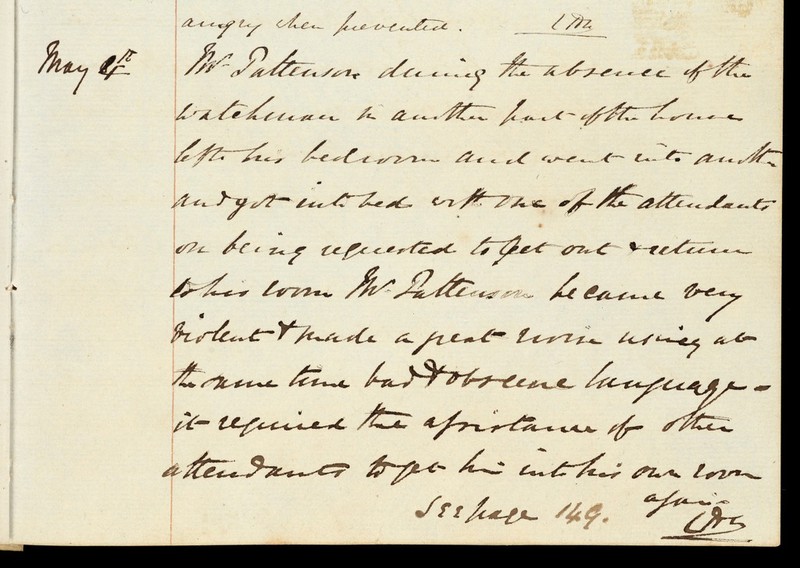 angry when prevented.
May 4th Mr Pattenson during the absence of the
watchman in another part of the house
left his bedroom and went into another
and got into bed with one of the attendants
on being requested to get out & return
to his room Mr Pattenson became very
violent & made a great noise using at
the same time bad & obscene language -
it required the assistance of other
attendants to get him into his own room
again
See page 149.